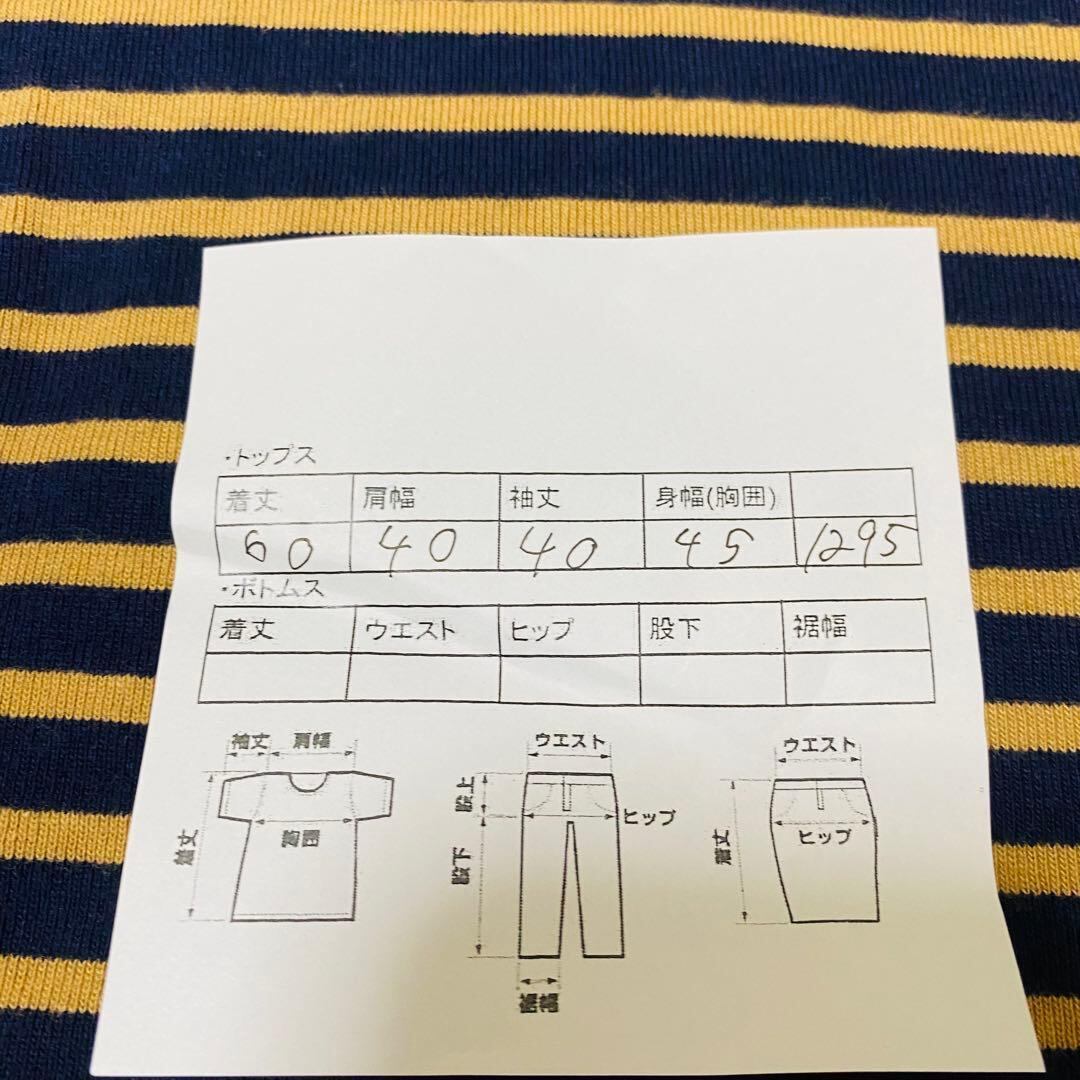 ・トップス
着丈 肩幅 袖丈 身幅(胸囲)
60 40 40 45 1295
・ボトムス
着丈 ウエスト ヒップ 股下 裾幅
袖丈 肩幅
着丈
胸囲
ウエスト
股上
ヒップ
股下
裾幅
ウエスト
着丈
ヒップ